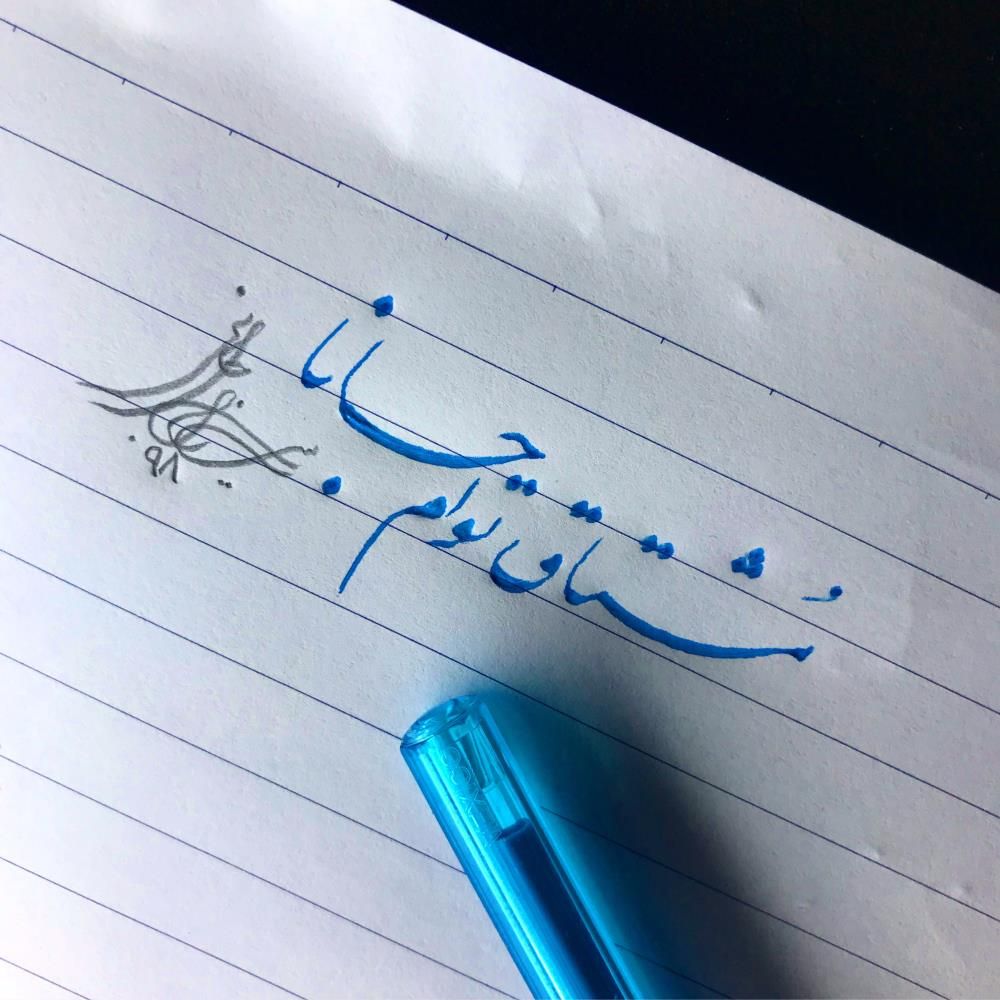 مُشتاق توام جانا
۹۸